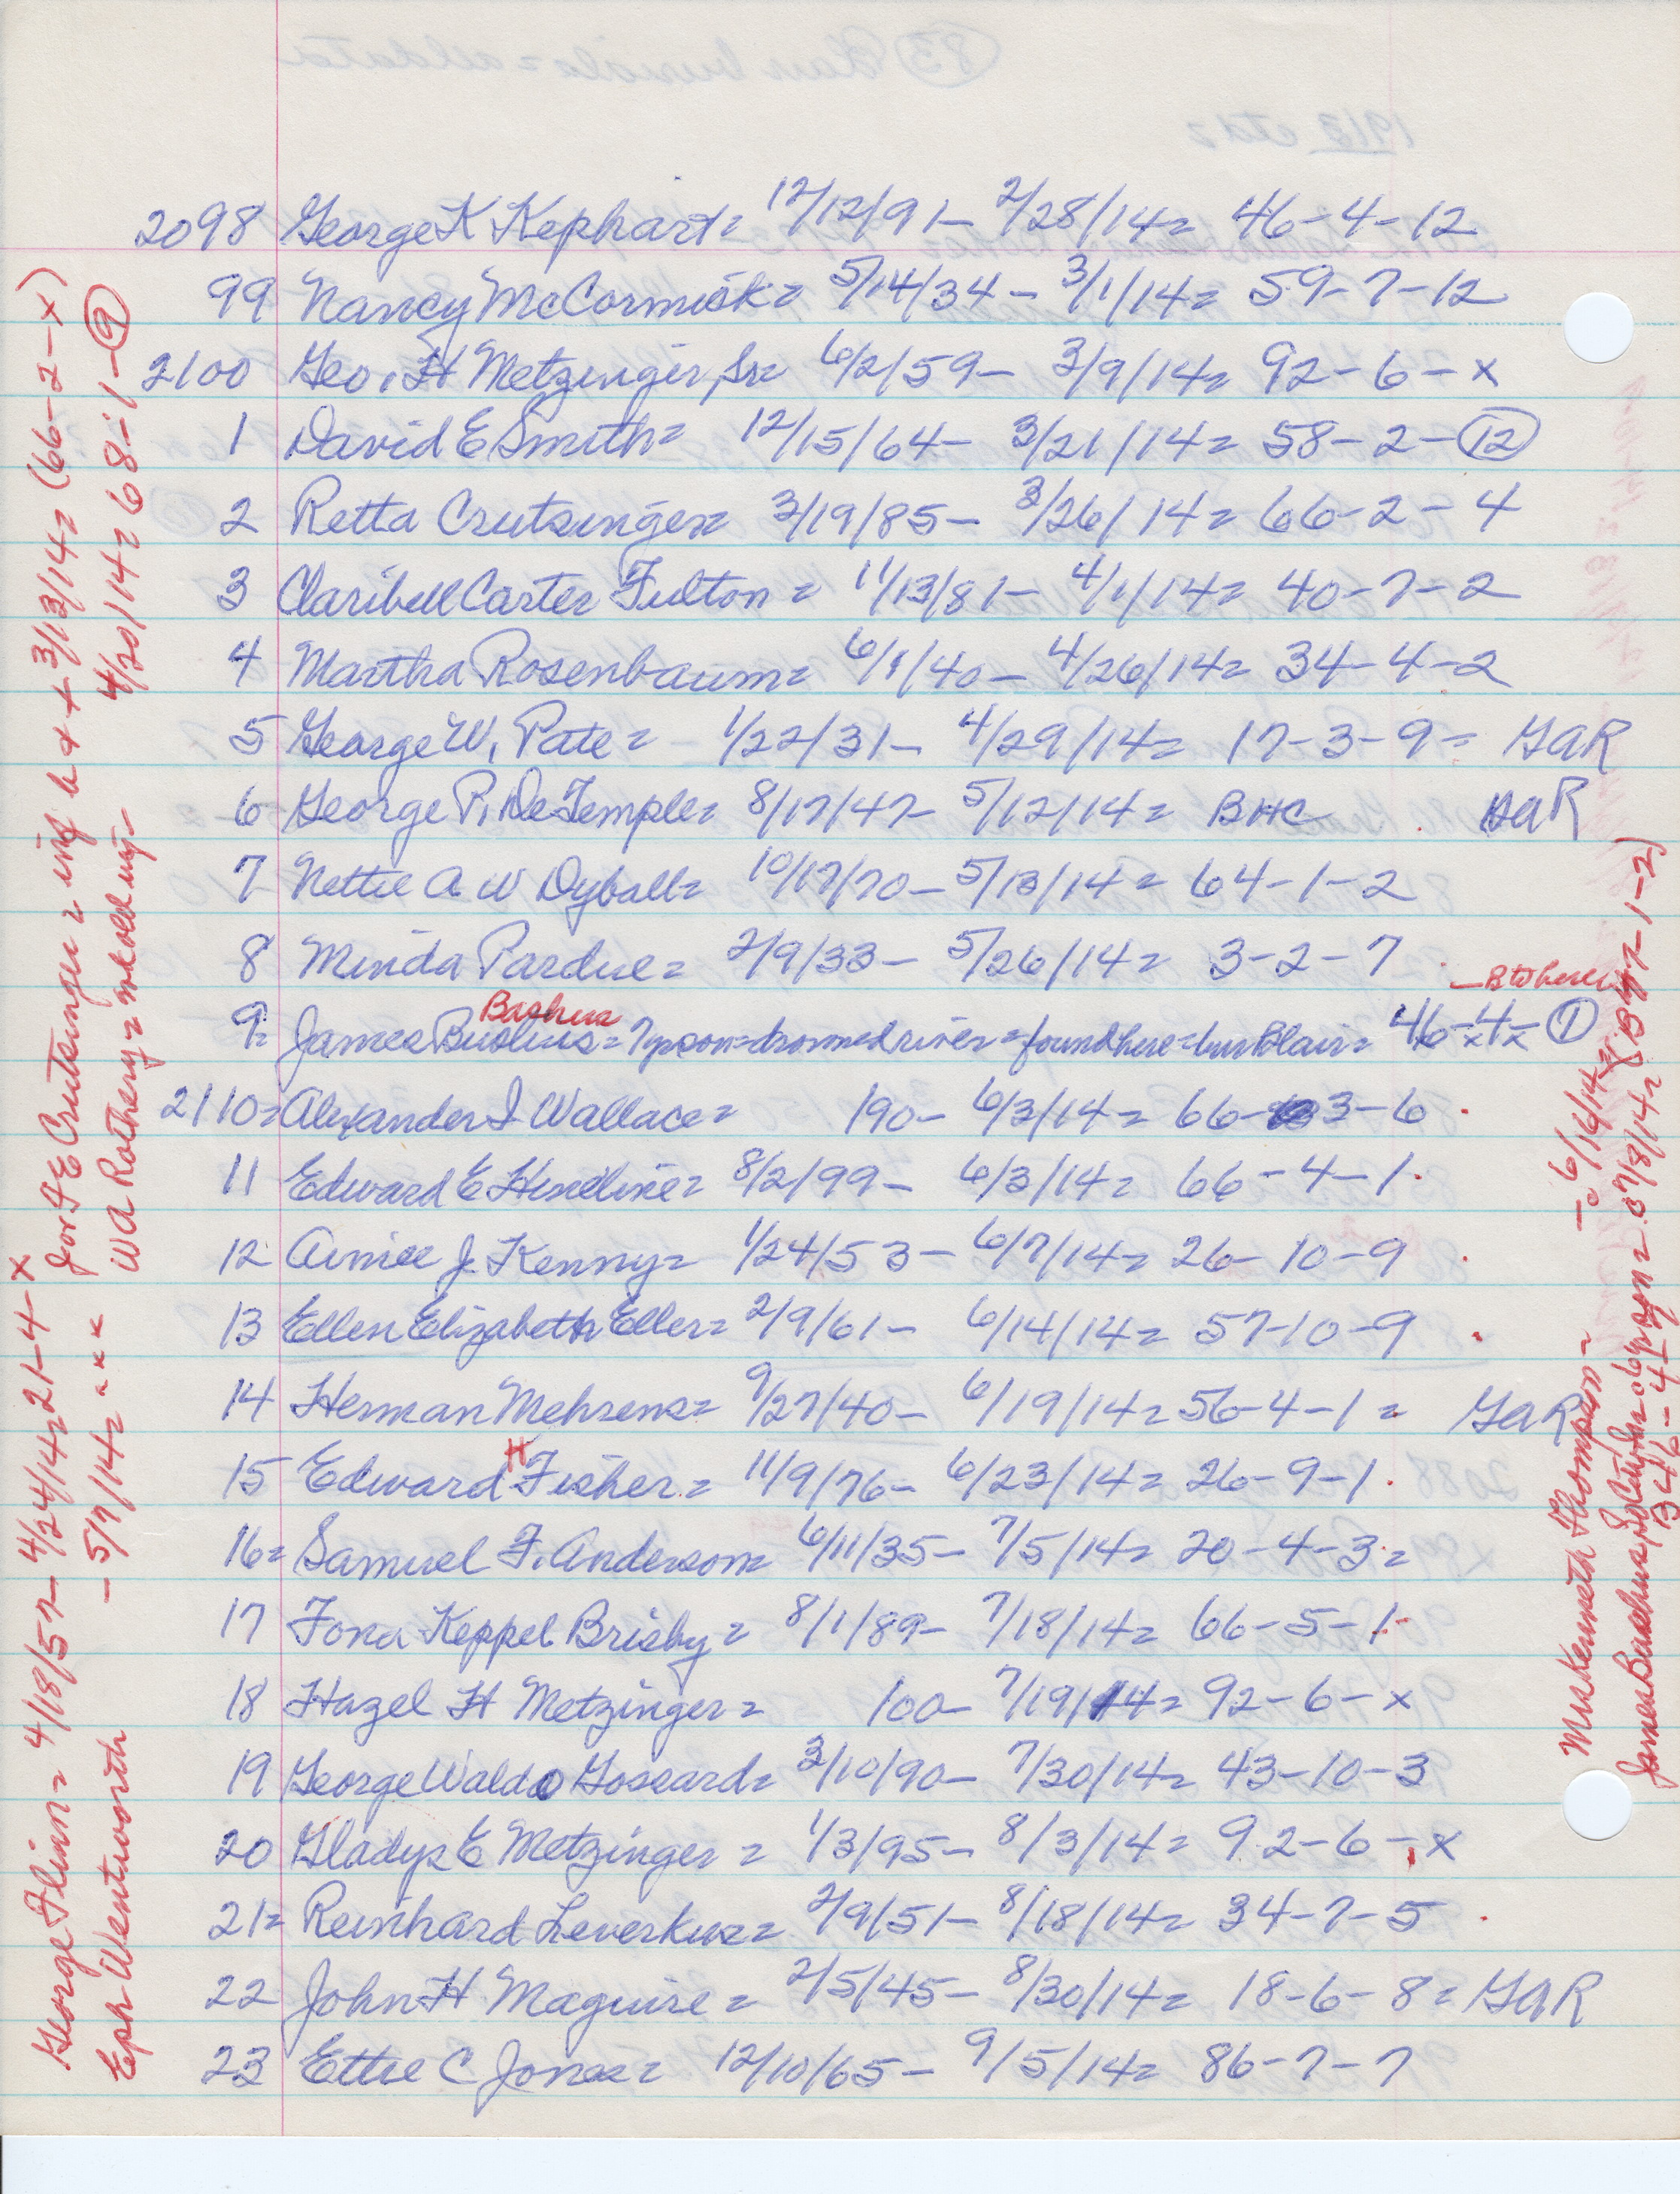 2098 George K Kephart = 12/12/91 - 2/28/14 = 46-4-12
99 Nancy McCormick = 5/14/34 - 3/1/14 = 59-7-12
2100 Geo. H Metzinger, Sr = 6/2/59 - 3/9/14 = 92-6-x
1 David E Smith = 12/15/64 - 3/21/14 = 58-2-(12)
2 Retta Crutsinger = 3/19/85 - 3/26/14 = 66-2-4
3 Claribell Carter Fulton = 11/13/81 - 4/1/14 = 40-7-2
4 Martha Rosenbaum = 6/1/40 - 4/26/14 = 34-4-2
5 George W. Pate = 1/22/31 - 4/29/14 = 17-3-9 = GAR
6 George P. DeTemple = 8/17/47 - 5/12/14 = BHC GAR
7 Nettie A W Dyball = 10/17/70 - 5/13/14 = 64-1-2
8 Minda Pardue = 2/9/33 - 5/26/14 = 3-2-7
Bashus
9 = James = Tyson = drowned river = found here = bur Blair = 46-4-(1)
2110 = Alexander I Wallace = 190- 6/3/14 = 66-3-6
11 Edward E Hindline = 8/2/99 - 6/3/14 = 66-4-1
12 Aimee J. Kenny = 1/24/53 - 6/7/14 = 26-10-9
13 Ellen Elizabeth Eller = 2/9/61 - 6/14/14 = 57-10-9
14 Herman Mehrens = 9/27/40 - 6/19/14 = 56-4-1 = GAR
15 Edward H Fisher = 11/9/76 - 6/23/14 = 26-9-1
16 = Samuel F. Anderson = 6/11/35 - 7/5/14 = 20-4-3 =
17 Fona Keppel Brisby = 8/1/89 - 7/18/14 = 66-5-1
18 Hazel H Metzinger = 100- 7/19/14 = 92-6-x
19 George Waldo Gossard = 3/10/90 - 7/30/14 = 43-10-3
20 Gladys E Metzinger = 1/3/95 - 8/3/14 = 92-6-x
21 = Reinhard Leverkus = 2/9/51 - 8/18/14 = 34-7-5
22 John H Maguire = 2/5/45 - 8/30/14 = 18-6-8 = GAR
23 Ettie C Jones = 12/10/65 - 9/5/14 = 86-7-7
George Flinn = 4/18/57 - 4/24/14 = 21-4-x
Eph Wentworth - 5/7/14 = x x x
E Crutsinger = inf 3/13/14 = (66-2-x)
W A Rothery = 4/20/14 = 68-1-(9)
Mrs Kenneth Thompson - 6/14/14
James